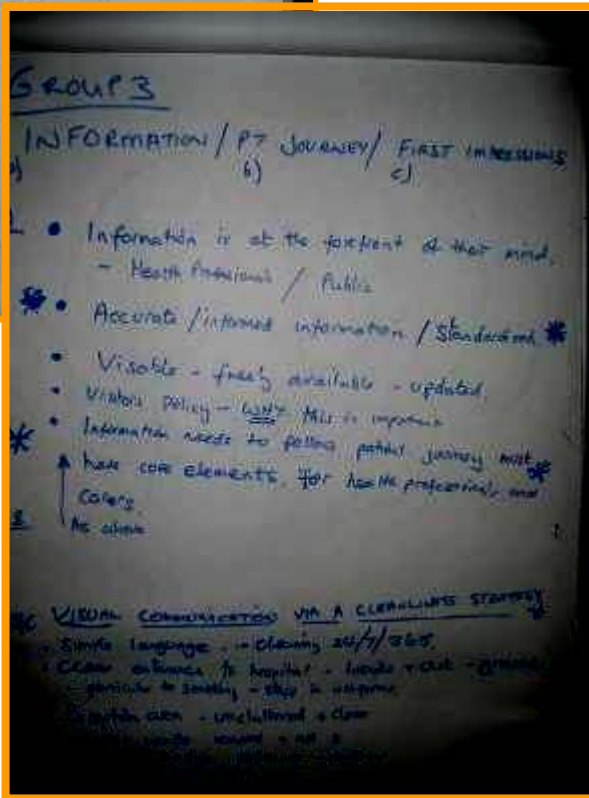 GROUP 3
INFORMATION / PT JOURNEY / FIRST IMPRESSIONS
b) c)
• Information is at the forefront of their mind.
- Health Professionals / Public
* • Accurate / informed information / Standardised *
• Visable - freely available - updated.
• Visitors Policy - WHY this is important
* • Information needs to follow patient journey must *
have core elements, for health professionals and
carers.
As above
VISUAL COMMUNICATION VIA A CLEANLINESS STRATEGY
• Simple language - cleaning 24/7/365.
• Clean entrance to hospital - inside + out -
smoking - in uniform
- uncluttered + clean